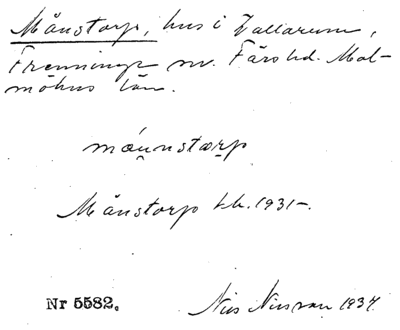 Månstorp, hus i Vallarum,
Frenninge sn. Färs hd. Mal-
möhus län.
móu̯nstærp
Månstorp kb. 1931-.
Nr 5582. Nils Nilsson 1937.